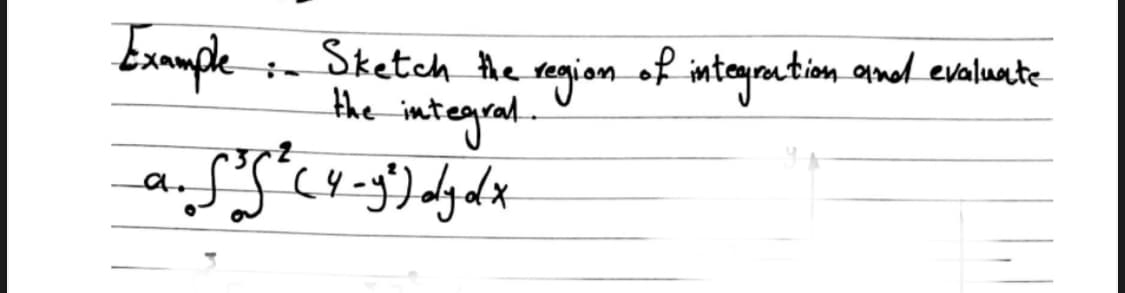 Example :- Sketch the region of integration and evaluate
the integral.
a. ∫₀³∫₀² (4-y²) dy dx